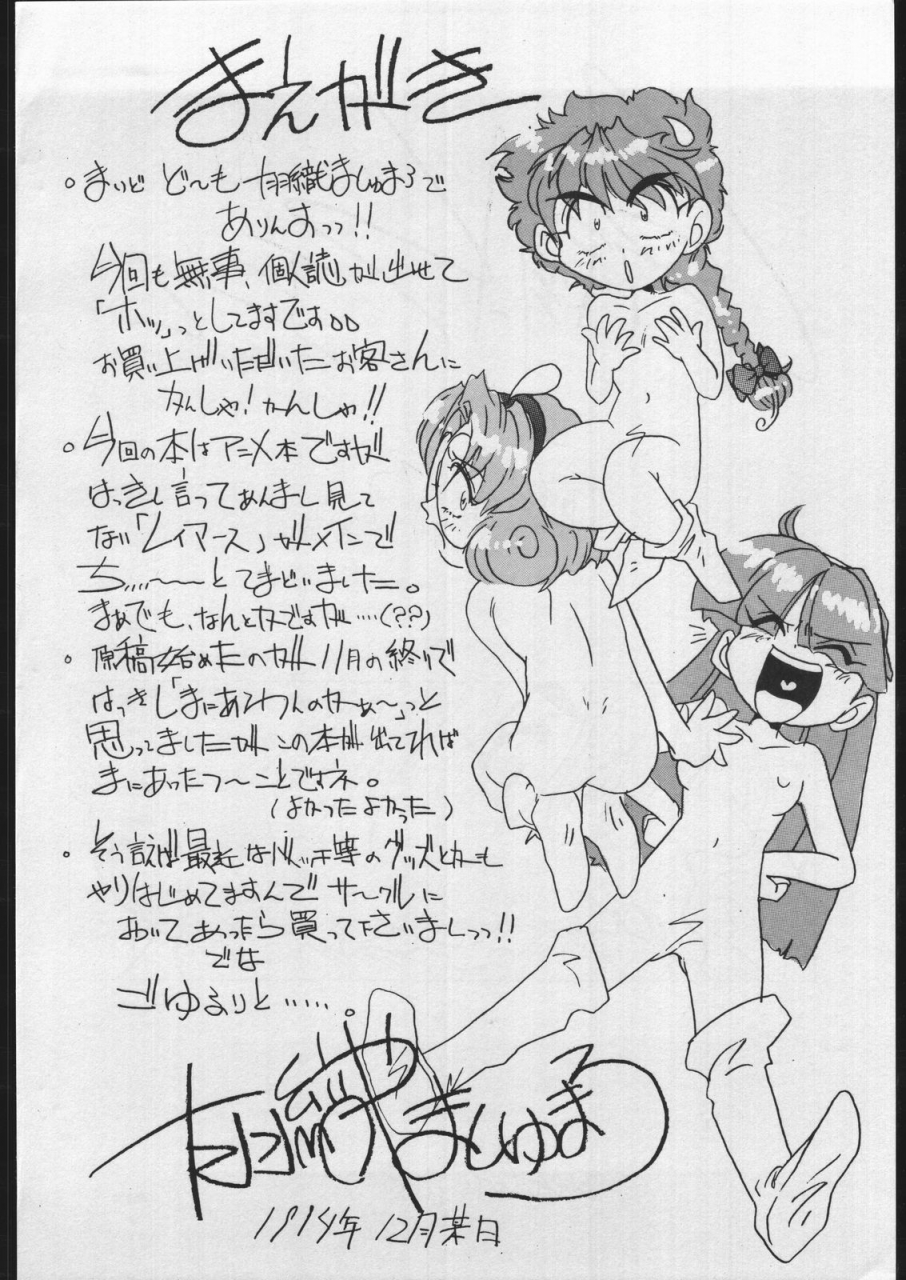 まえがき
。まいど ど〜も 羽織ましゅまろで
ありんすっっ!!
今回も無事、個人誌が、出せて
「ホッ」っとしてますです。。
お買い上げいただいたお客さんに
かんしゃ!かんしゃ!!
。今回の本はアニメ本ですが
はっきし言ってあんまし見て
ない「レイアース」がメインで
ち....〜〜とてまどいました。
まぁでも、なんとかですが....(??)
。原稿始めたのが11月の終りで
はっきし「まにあわんのかぁ〜」っと
思ってましたが この本が出てれば
まにあったつ〜ことですネ。
(よかったよかった)
。そう言えば最近はバッチ等のグッズとかも
やりはじめてますんで サークルに
おいてあったら買って下さいましっっ!!
では
ごゆるりと......。
羽織ましゅまろ
1994年 12月某日